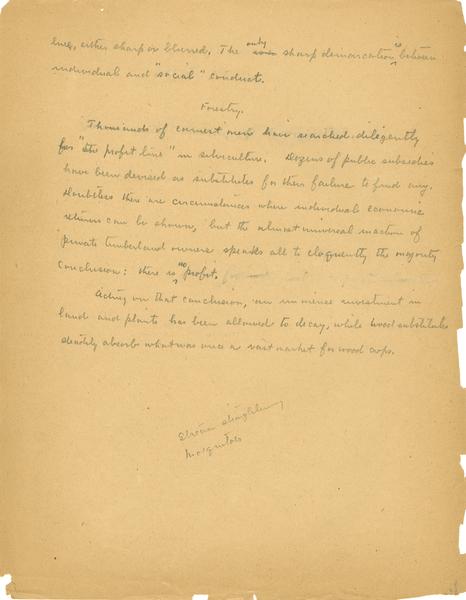 lines, either sharp or blurred. The only sharp demarcation is between
individual and "social" conduct.
Forestry.
Thousands of earnest men have searched diligently
for "the profit line" in silviculture. Dozens of public subsidies
have been devised as substitutes for their failure to find any.
Doubtless there are circumstances where individual economic
returns can be shown, but the almost universal inaction of
private timberland owners speaks all to eloquently the majority
conclusion: there is no profit.
Acting on that conclusion, an immense investment in
land and plants has been allowed to decay, while wood substitutes
steadily absorb what was once a vast market for wood crops.
Mosquitoes